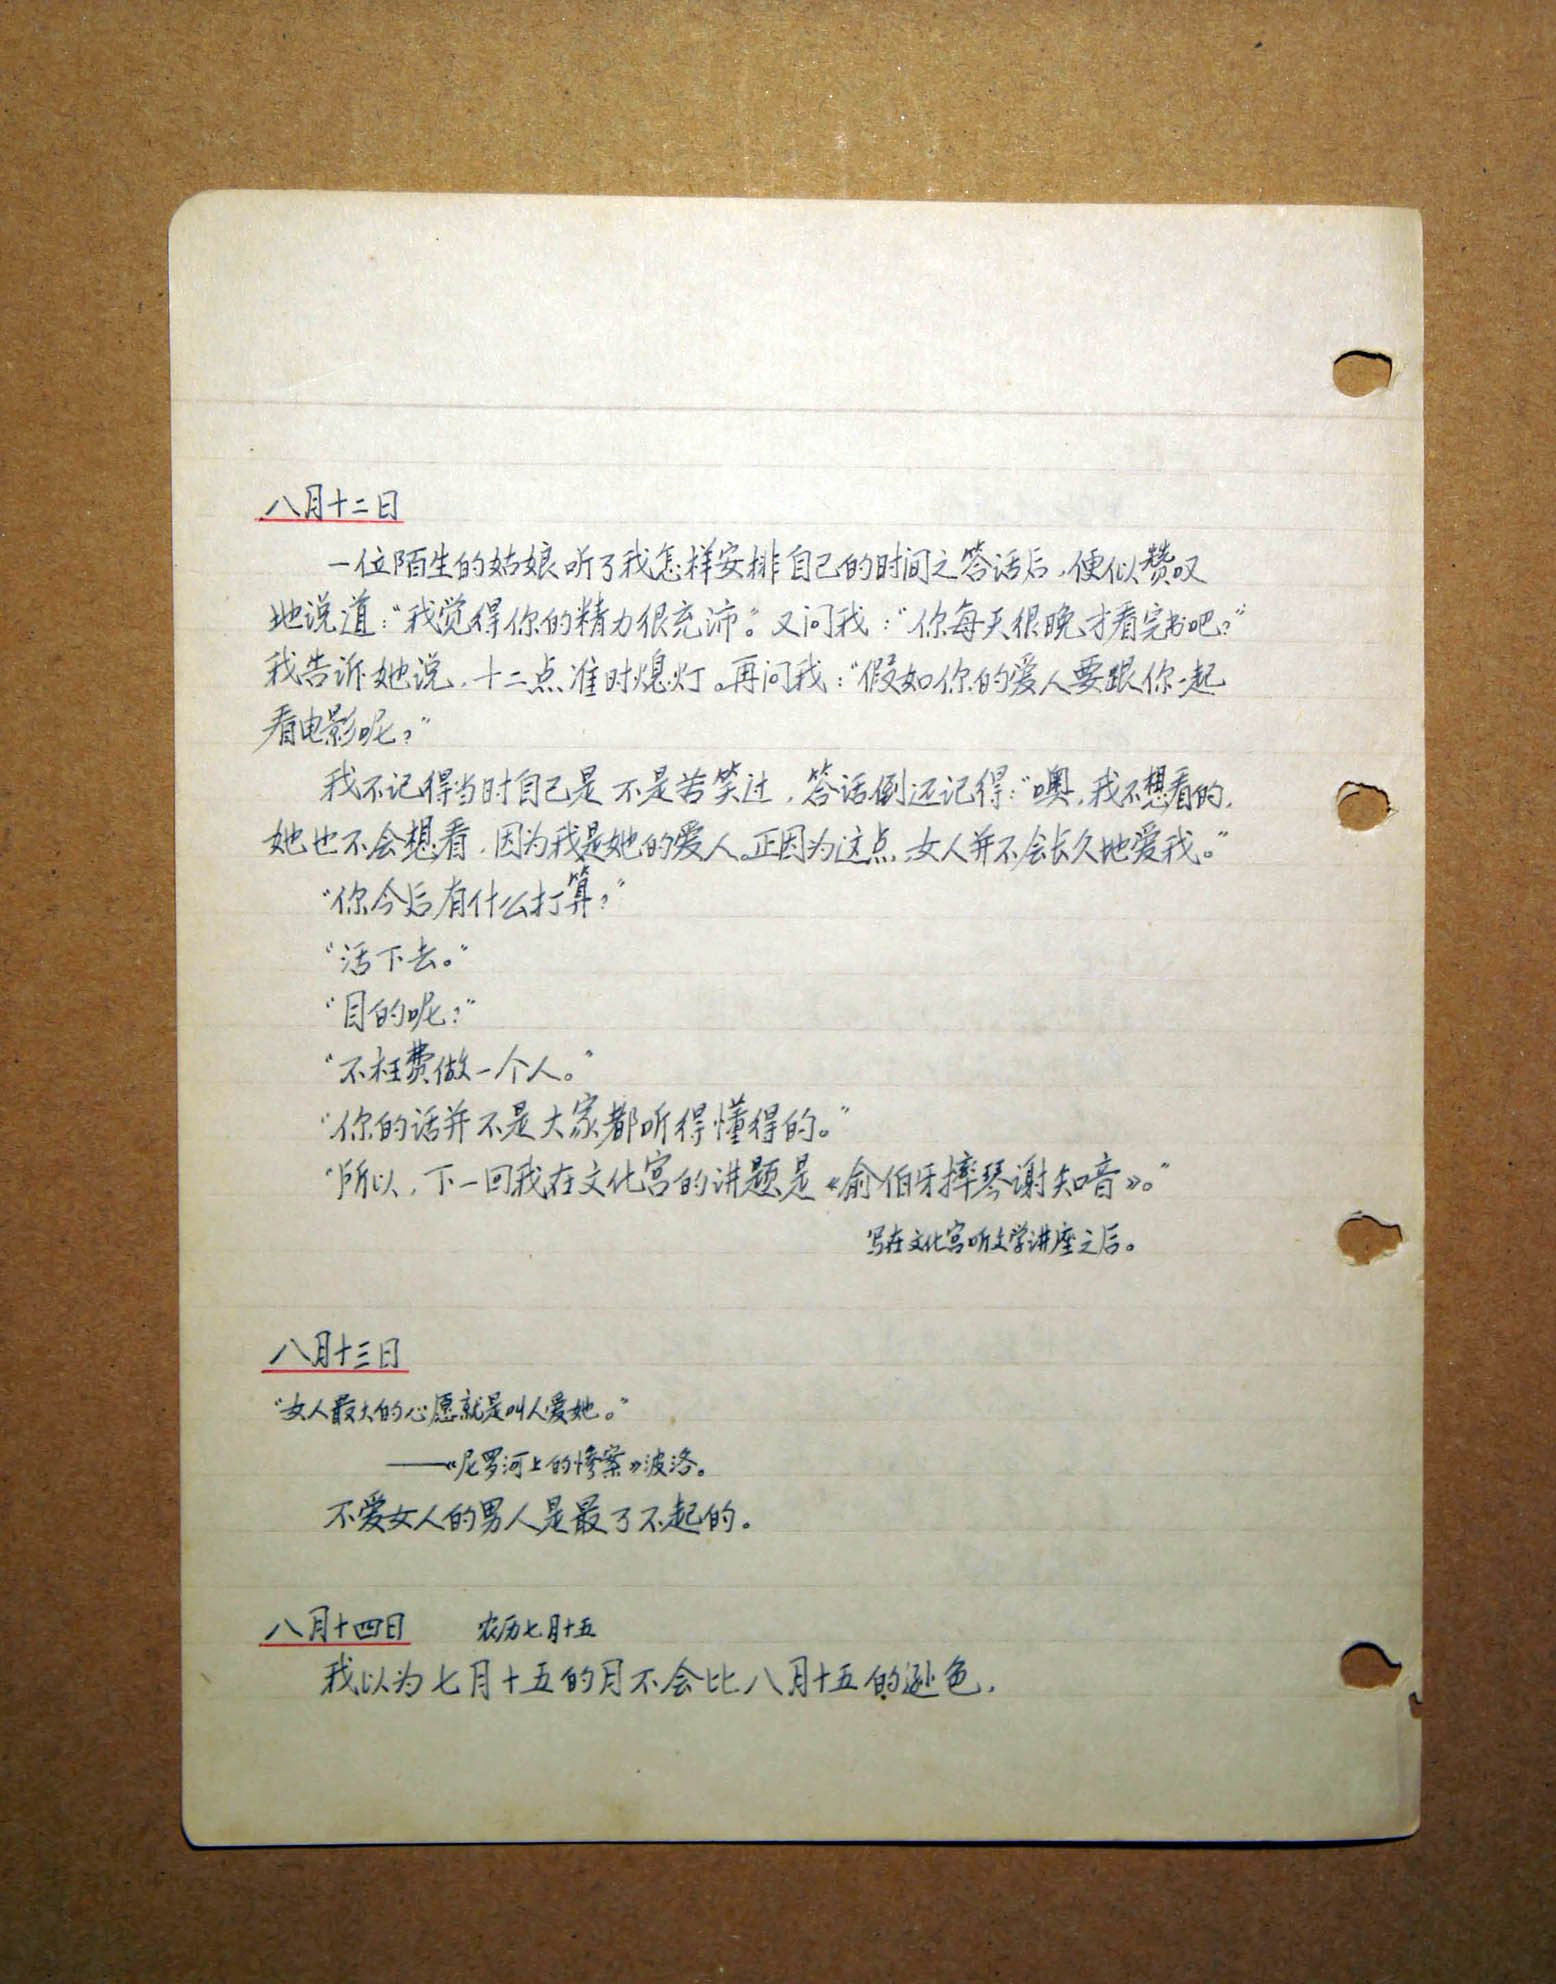 八月十二日
一位陌生的姑娘听了我怎样安排自己的时间之答话后，便似赞叹
地说道：“我觉得你的精力很充沛。”又问我：“你每天很晚才看完书吧？”
我告诉她说，十二点准时熄灯。再问我：“假如你的爱人要跟你一起
看电影呢？”
我不记得当时自己是不是苦笑过，答话倒还记得：“噢，我不想看的，
她也不会想看，因为我是她的爱人。正因为这点，女人并不会长久地爱我。”
“你今后有什么打算？”
“活下去。”
“目的呢？”
“不枉费做一个人。”
“你的话并不是大家都听得懂得的。”
“所以，下一回我在文化宫的讲题是《俞伯牙摔琴谢知音》。”
写在文化宫听文学讲座之后。
八月十三日
“女人最大的心愿就是叫人爱她。”
——《尼罗河上的惨案》波洛。
不爱女人的男人是最了不起的。
八月十四日 农历七月十五
我以为七月十五的月不会比八月十五的逊色。